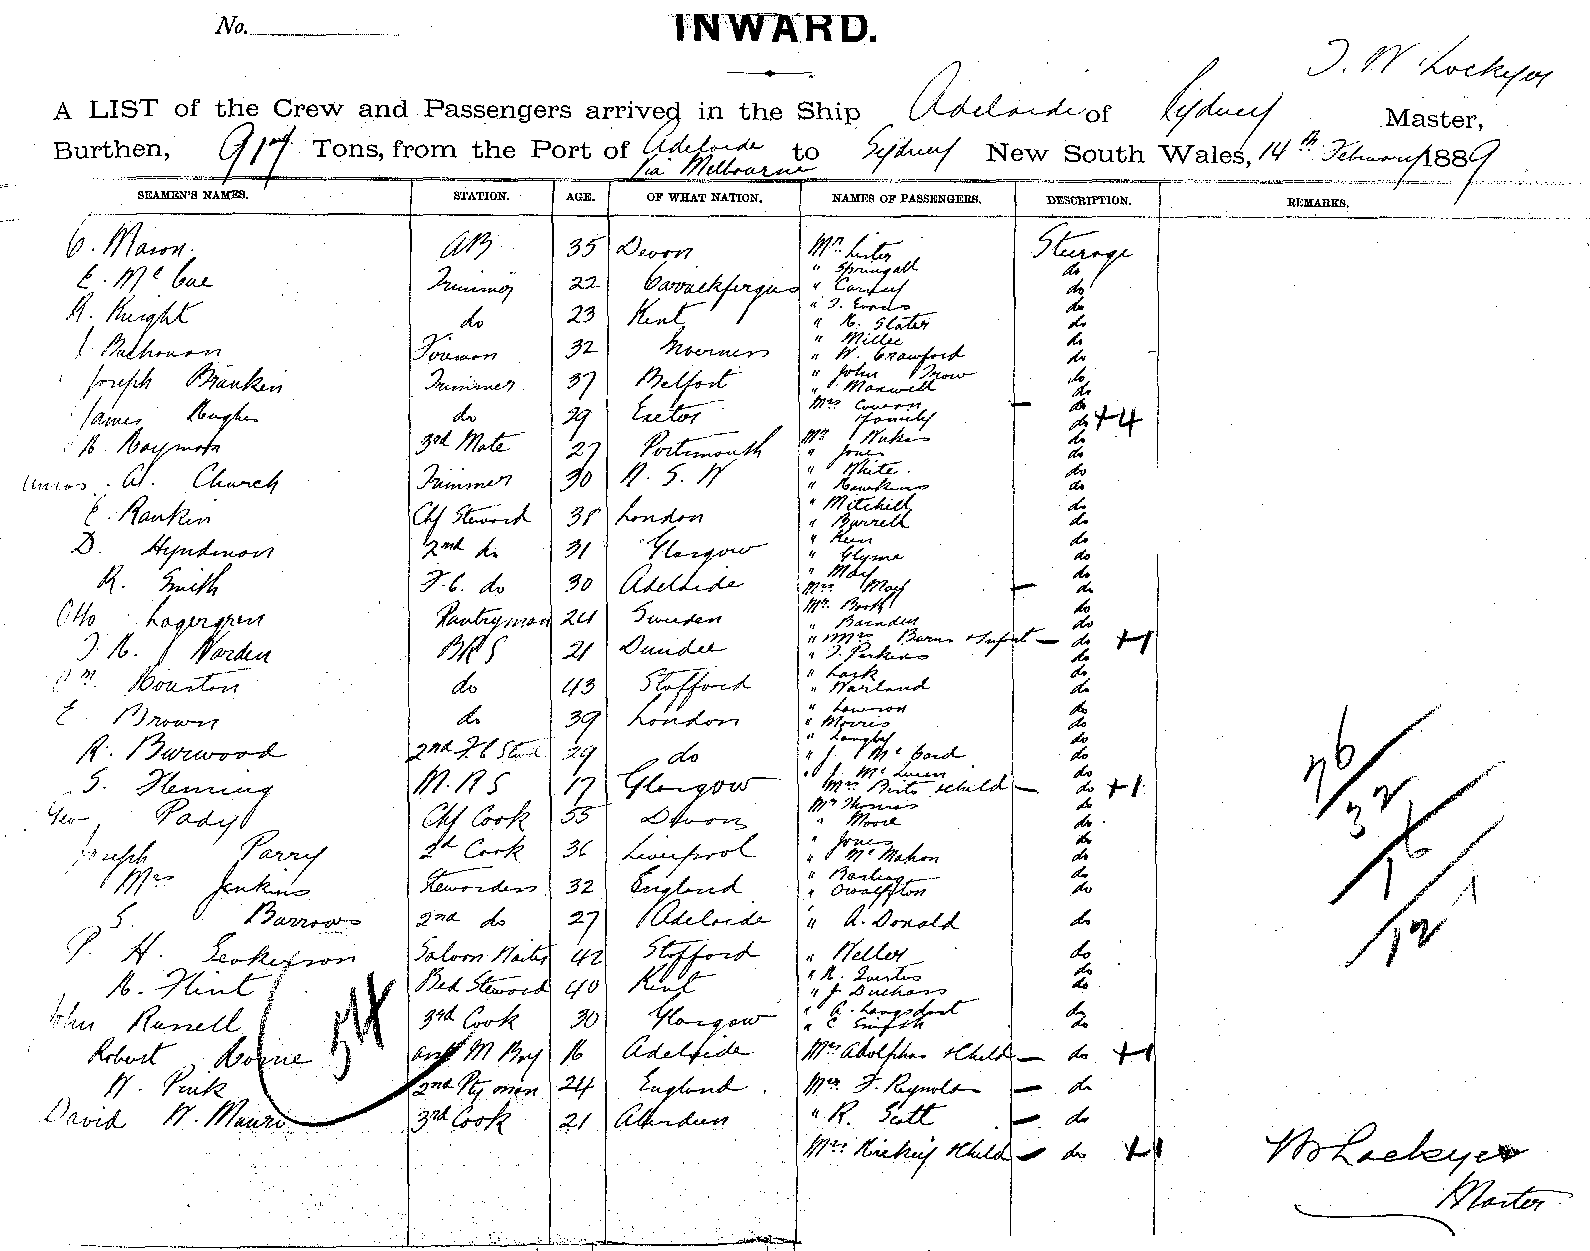 No.
INWARD.
T. W. Lockyer
A LIST of the Crew and Passengers arrived in the Ship Adelaide of Sydney Master,
Burthen, 917 Tons, from the Port of Adelaide to Sydney New South Wales, 14th February 1889
Via Melbourne
SEAMEN'S NAMES. STATION. AGE. OF WHAT NATION. NAMES OF PASSENGERS. DESCRIPTION. REMARKS.
C. Mason. AB 35 Devon Mr. Lister Steerage
" Springall do
E. Mc Cue Trimmer 22 Carrickfergus " Carney do
" T. Evans do
R. Knight do 23 Kent " R. Slater do
" Miller do
J. Buchanan Fireman 32 Inverness " W. Crawford do
Joseph Brankin Trimmer 37 Belfast " John Trow do
" Maxwell do
James Hughes do 29 Exeter Mrs Covern — do
Family do +4
H. Hayman 3rd Mate 27 Portsmouth Mr. Wukes do
" Jones do
A. Church Trimmer 30 N. S. W " White do
" Hawkins do
E. Rankin Chf Steward 38 London " Mitchell do
" Burrell do
D. Hyndman 2nd do 31 Glasgow " Keen do
" Glyme do
R. Smith F.C. do 30 Adelaide " May do
Mrs May — do
Otto Lagergren Pantryman 24 Sweden Mr. Book do
" Bainden do
J. H. Warden BRS 21 Dundee " Mrs Burns & Infant — do +1
" T. Perkins do
Wm. Houston do 43 Stafford " Lark do
" Warland do
E. Brown do 39 London " Lawson do
" Morris do
R. Burwood 2nd F C Std 29 do " Langley do
" J. Mc Card do
S. Fleming M.R.S 17 Glasgow " J. Mc Laren do
Mrs Birts & Child — do +1
Geo Pady Chf Cook 55 Devon Mr Thomas do
" Moore do
Joseph Parry 2d Cook 36 Liverpool " Jones do
" Mc Mahon do
Mrs Jenkins Stewardess 32 England " Basling do
do
S. Burrows 2nd do 27 Adelaide " A. Donald do
P. H. Saloon Waiter 42 Stafford " Keller do
H. Flint Bed Steward 40 Kent " do
" J. do
John Russell 3rd Cook 30 Glasgow " A. Langsdort do
" C Smith do
Robert Horne M Boy 16 Adelaide Mrs Adolphas & Child — do +1
W. Pink 2nd Ptyman 24 England Mrs F. Reynolds — do
David W. Munro 3rd Cook 21 Aberdeen " R. Scott — do
Mrs Hickey & Child — do +1
54
76
32
16
12
W Lockyer
Master